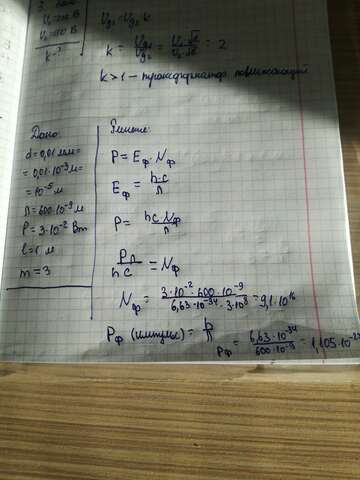 U₁=220 В
k-?
Uд₁=Uд₂ k
k = Uд₁/Uд₂ = U₁·√2/U₂·√2 = 2
k>1 – трансформатор повышающий
Дано:
d=0,01 мм=
=0,01·10⁻³м=
=10⁻⁵ м
λ=600·10⁻⁹ м
P=3·10⁻² Вт
l=1 м
m=3
Решение:
P = Eф · Nф
Eф = h·c/λ
P = hc Nф/λ
Pλ/hc = Nф
Nф = 3·10⁻²·600·10⁻⁹/6,63·10⁻³⁴·3·10⁸ = 9,1·10¹⁶
Pф (импульс) = h/λ
Pф = 6,63·10⁻³⁴/600·10⁻⁹ = 1,105·10⁻²